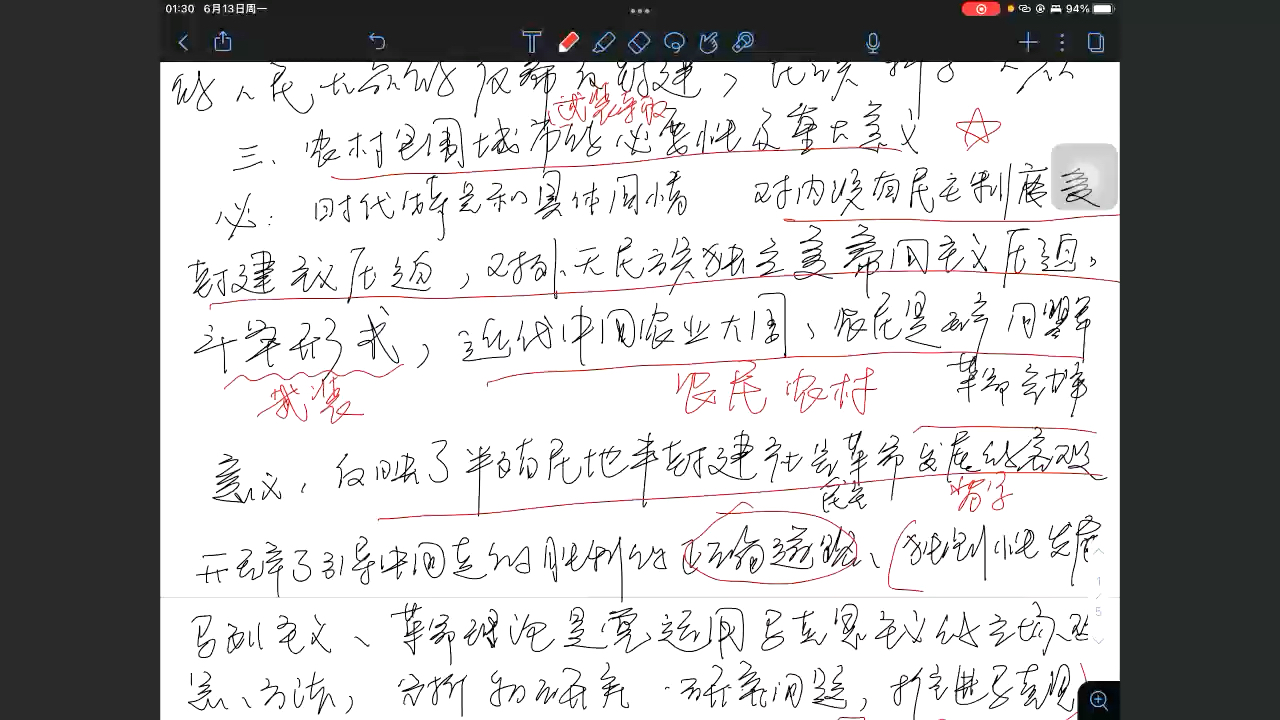 01:30 6月13日周一
94%
武装夺取
三、农村包围城市的必要性及重大意义
必：时代特点和具体国情 对内没有民主制度受
封建主义压迫，对外无民族独立受帝国主义压迫。
斗争形式，近代中国农业大国、农民是 同盟军
武装 农民 农村 革命主力军
意义，反映了半殖民地半封建社会革命发展的客观
民主
开辟了引导中国走向胜利的正确道路、独创性发展
马列主义、革命理论是需运用马克思主义的立场、观
点、方法，分析和研究 研究问题，
1
5